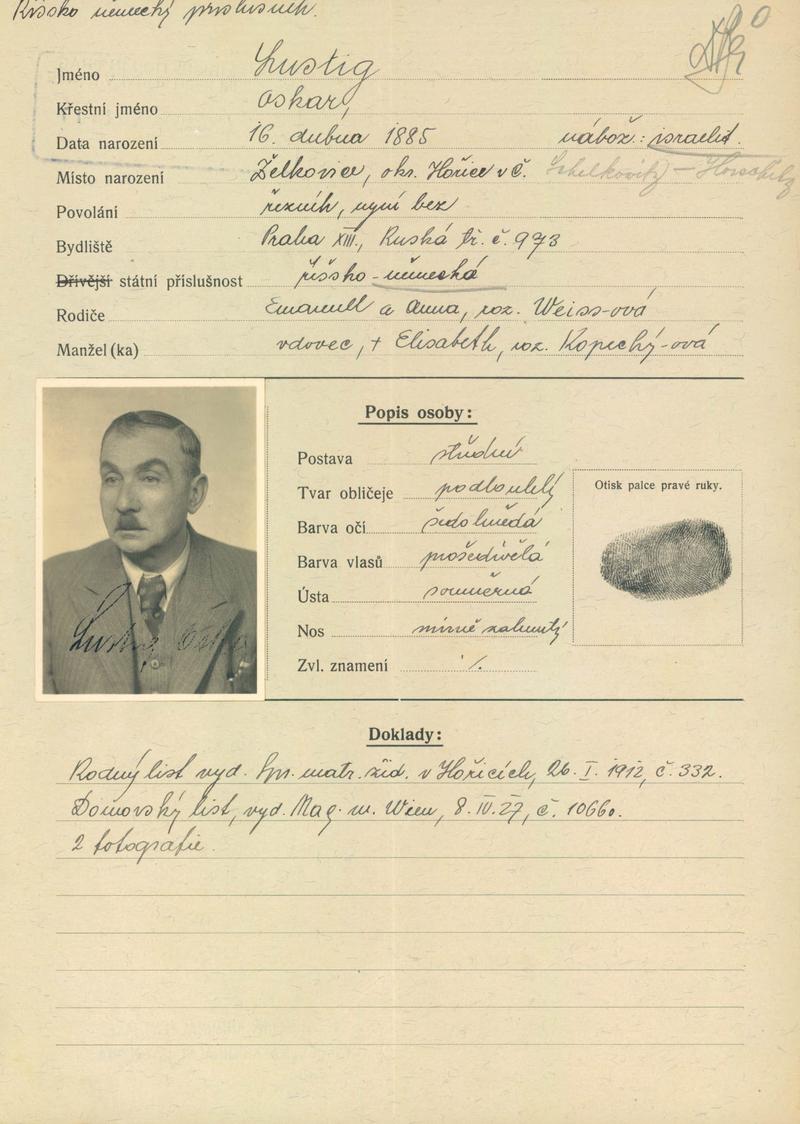 Říšsko německý příslušník.
Jméno Lustig
Křestní jméno Oskar,
Data narození 16. dubna 1885 nábož.: israelit.
Místo narození Želkovice, okr. Hořice v Č. Schelkowitz – Horschitz
Povolání řezník, nyní bez
Bydliště Praha XIII., Ruská tř. č. 973
Dřívější státní příslušnost říšsko-německá
Rodiče Emanuell a Anna, roz. Weiss-ová
Manžel (ka) vdovec, † Elisabeth, roz. Kopecký-ová
Popis osoby:
Postava střední
Tvar obličeje podlouhlý
Barva očí šedohnědá
Barva vlasů prošedivělá
Ústa souměrná
Nos mírně zahnutý
Zvl. znamení ./.
Otisk palce pravé ruky.
Lustig Oskar
Doklady:
Rodný list vyd. Spr. matr. žid. v Hořicích, 26. I. 1912, č. 332.
Domovský list, vyd. Mag. m. Wien, 8. IV. 27, č. 10660.
2 fotografie.